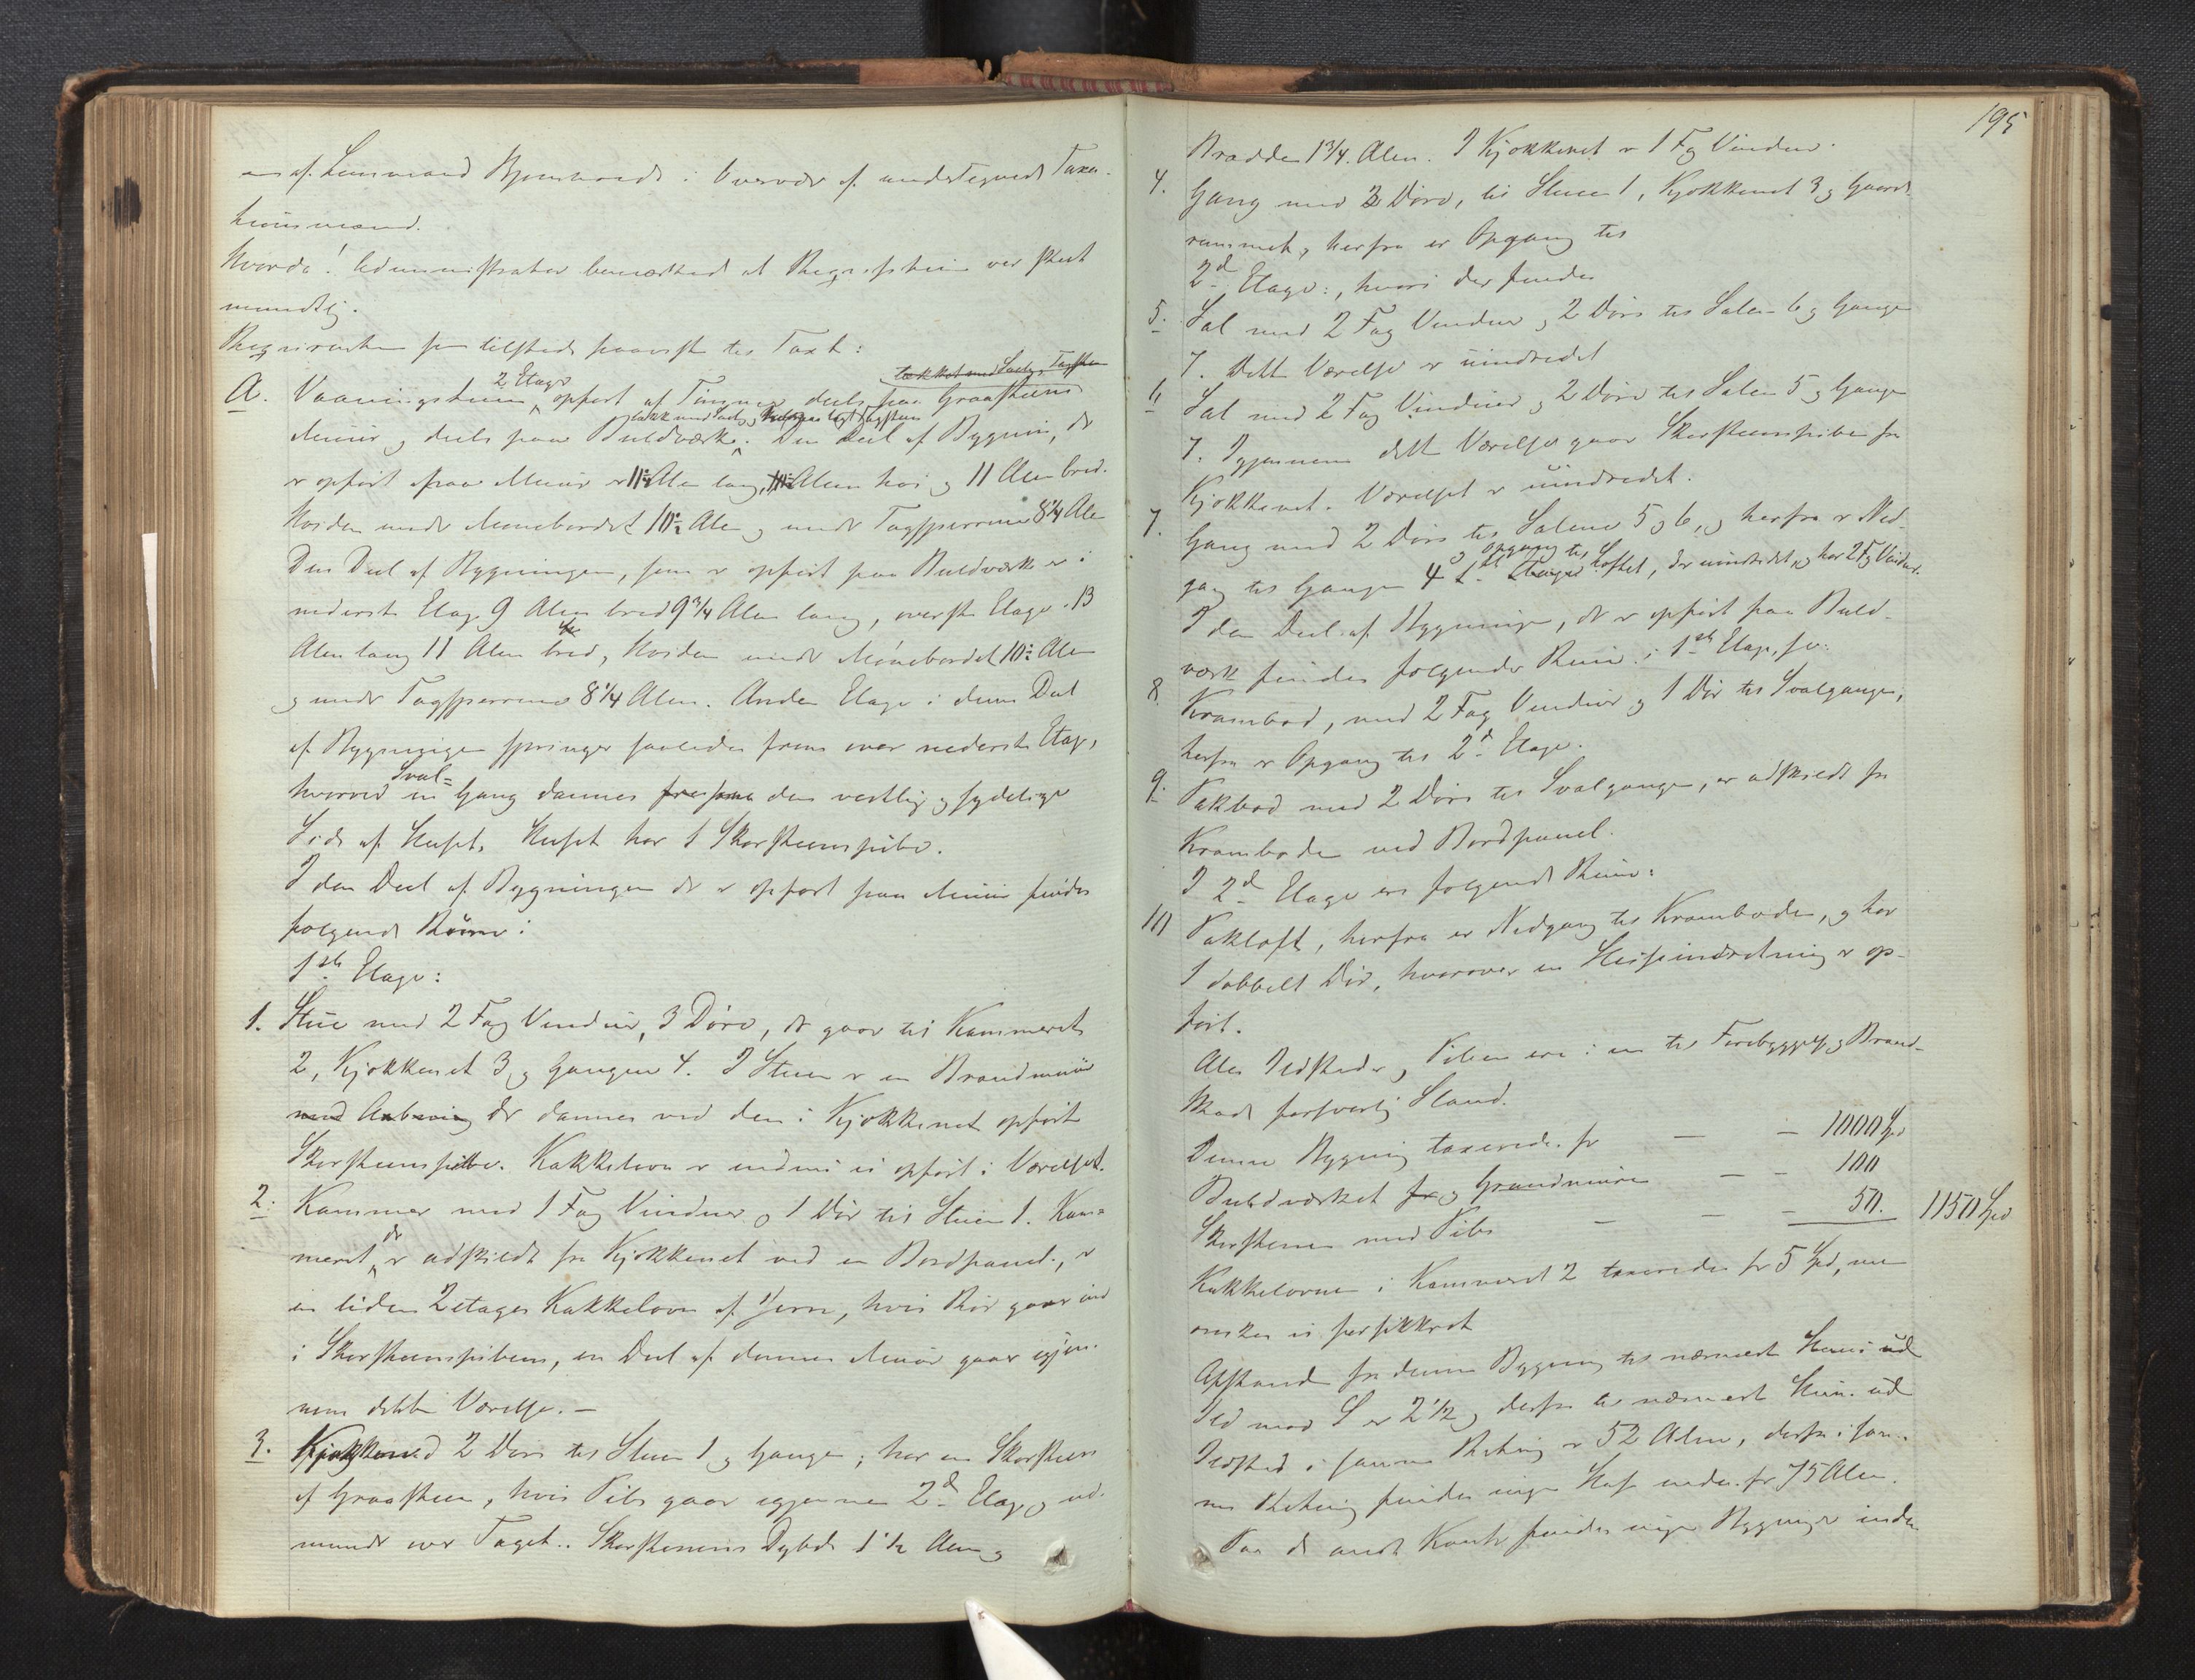 af Lensmand i Overvær af undertegnede Taxa-
tionsmænd.
Hvorda! Administrator bemærked at Reqvisition var skeet
mundtlig.
Reqvirenten som tilstede paaviste til Taxt:
A. Vaaningshuus 2 Etager opført af Tømmer deels paa Graasteens
Muur og deels paa Buldværk. Den Deel af Bygning, der
er opført paa Muur er 11½ Alen lang, Alen høi og 11 Alen bred.
Høiden under Mønebordet 10½ Alen og under Tagsperrene 8¼ Alen
Den Deel af Bygningen, som er opført paa Buldværk er i
nederste Etage 9 Alen bred 9¾ Alen lang, øverste Etage 13
Alen lang 11 Alen bred, Høiden under Mønebordet 10½ Alen
og under Tagsperrene 8¼ Alen. Anden Etage i denne Deel
af Bygningen springer saaledes frem over nederste Etage,
hvorved en Sval-Gang dannes paa den vestlige og sydelige
Side af Huset. Huset har 1 Skorsteenspibe.
I den Deel af Bygningen der er opført paa Muur findes
følgende Rum:
1ste Etage:
1. Stue med 2 Fag Vinduer, 3 Døre, der gaar til Kammeret
2, Kjøkkenet 3 og Gangen 4. I Stuen er en Brandmuur
der dannes ved den i Kjøkkenet opførte
Skorsteenspibe. Kakkelovn er endnu ei opført i Værelset.
2. Kammer med 1 Fag Vinduer og 1 Dør til Stuen 1. Kam-
meret, der er adskildt fra Kjøkkenet ved en Bordpanel, er
en liden 2 etages Kakkelovn af Jern, hvis Rør gaar ind
i Skorsteenspiben, en Deel af dennes Muur gaar igjen-
nem dette Værelse. —
3. Kjøkken med 2 Døre til Stuen 1 og Gangen; har en Skorsteen
af Graasteen, hvis Pibe gaar igjennem 2d Etage og ud-
munder over Taget. Skorstenens Dybde 1½ Alen og
195
Bredde 1¾ Alen. I Kjøkkenet er 1 Fag Vinduer.
4. Gang med 3 Døre, til Stuen 1, Kjøkkenet 3 og Gaards-
rummet, herfra er Opgang til
2d Etage:, hvori der findes
5. Sal med 2 Fag Vinduer og 2 Døre til Salen 6 og Gangen
7. Dette Værelse er uindredet
6 Sal med 2 Fag Vinduer og 2 Døre til Salen 5 og Gangen
7. Igjennem dette Værelse gaar Skorsteenspiben fra
Kjøkkenet. Værelset er uindredet.
7. Gang med 2 Døre til Salene 5 og 6, og herfra er Ned-
gang til Gangen 4 og Opgang til Loftet, der uindredet, og har 2 Fag Vinduer.
I den Deel af Bygningen, der er opført paa Buld-
værk findes følgende Rum i 1ste Etage, som:
8. Krambod, med 2 Fag Vinduer og 1 Dør til Svalgangen,
herfra er Opgang til 2d Etage.
9. Pakbod med 2 Døre til Svalgangen, er adskildt fra
Kramboden ved Bordpanel.
I 2d Etage ere følgende Rum:
10 Pakloft, herfra er Nedgang til Kramboden, og har
1 dobbelt Dør, hvorover en Heiseindretning er op-
ført.
Alle Ildsteder og Piben ere i en til Forebyggelse af Brand-
skade forsvarlig Stand.
Denne Bygning taxeredes for — — 1000 Spd
Buldværket og Grundmuren — — 100
Skorstenen med Pibe — — — 50. 1150 Spd
Kakkelovnen i Kammeret 2 taxeredes for 5 Spd, men
ønskes ei forsikkret
Afstand fra denne Bygning til nærmeste Huus uden
Ild mod S er 2½ og derfra til nærmeste Huus uden
Ildsted i samme Retning er 52 Alen, derfra i sam-
me Retning findes ingen Huse inden for 75 Alen.
Paa de andre Kanter findes ingen Bygninger inden